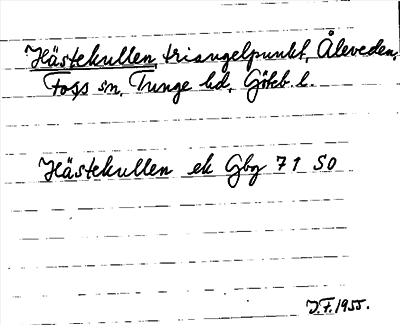 Hästekullen, triangelpunkt, Åleveden,
Foss sn, Tunge hd, Göteb. l.
Hästekullen ek Gbg 71 SO
J.F. 1955.